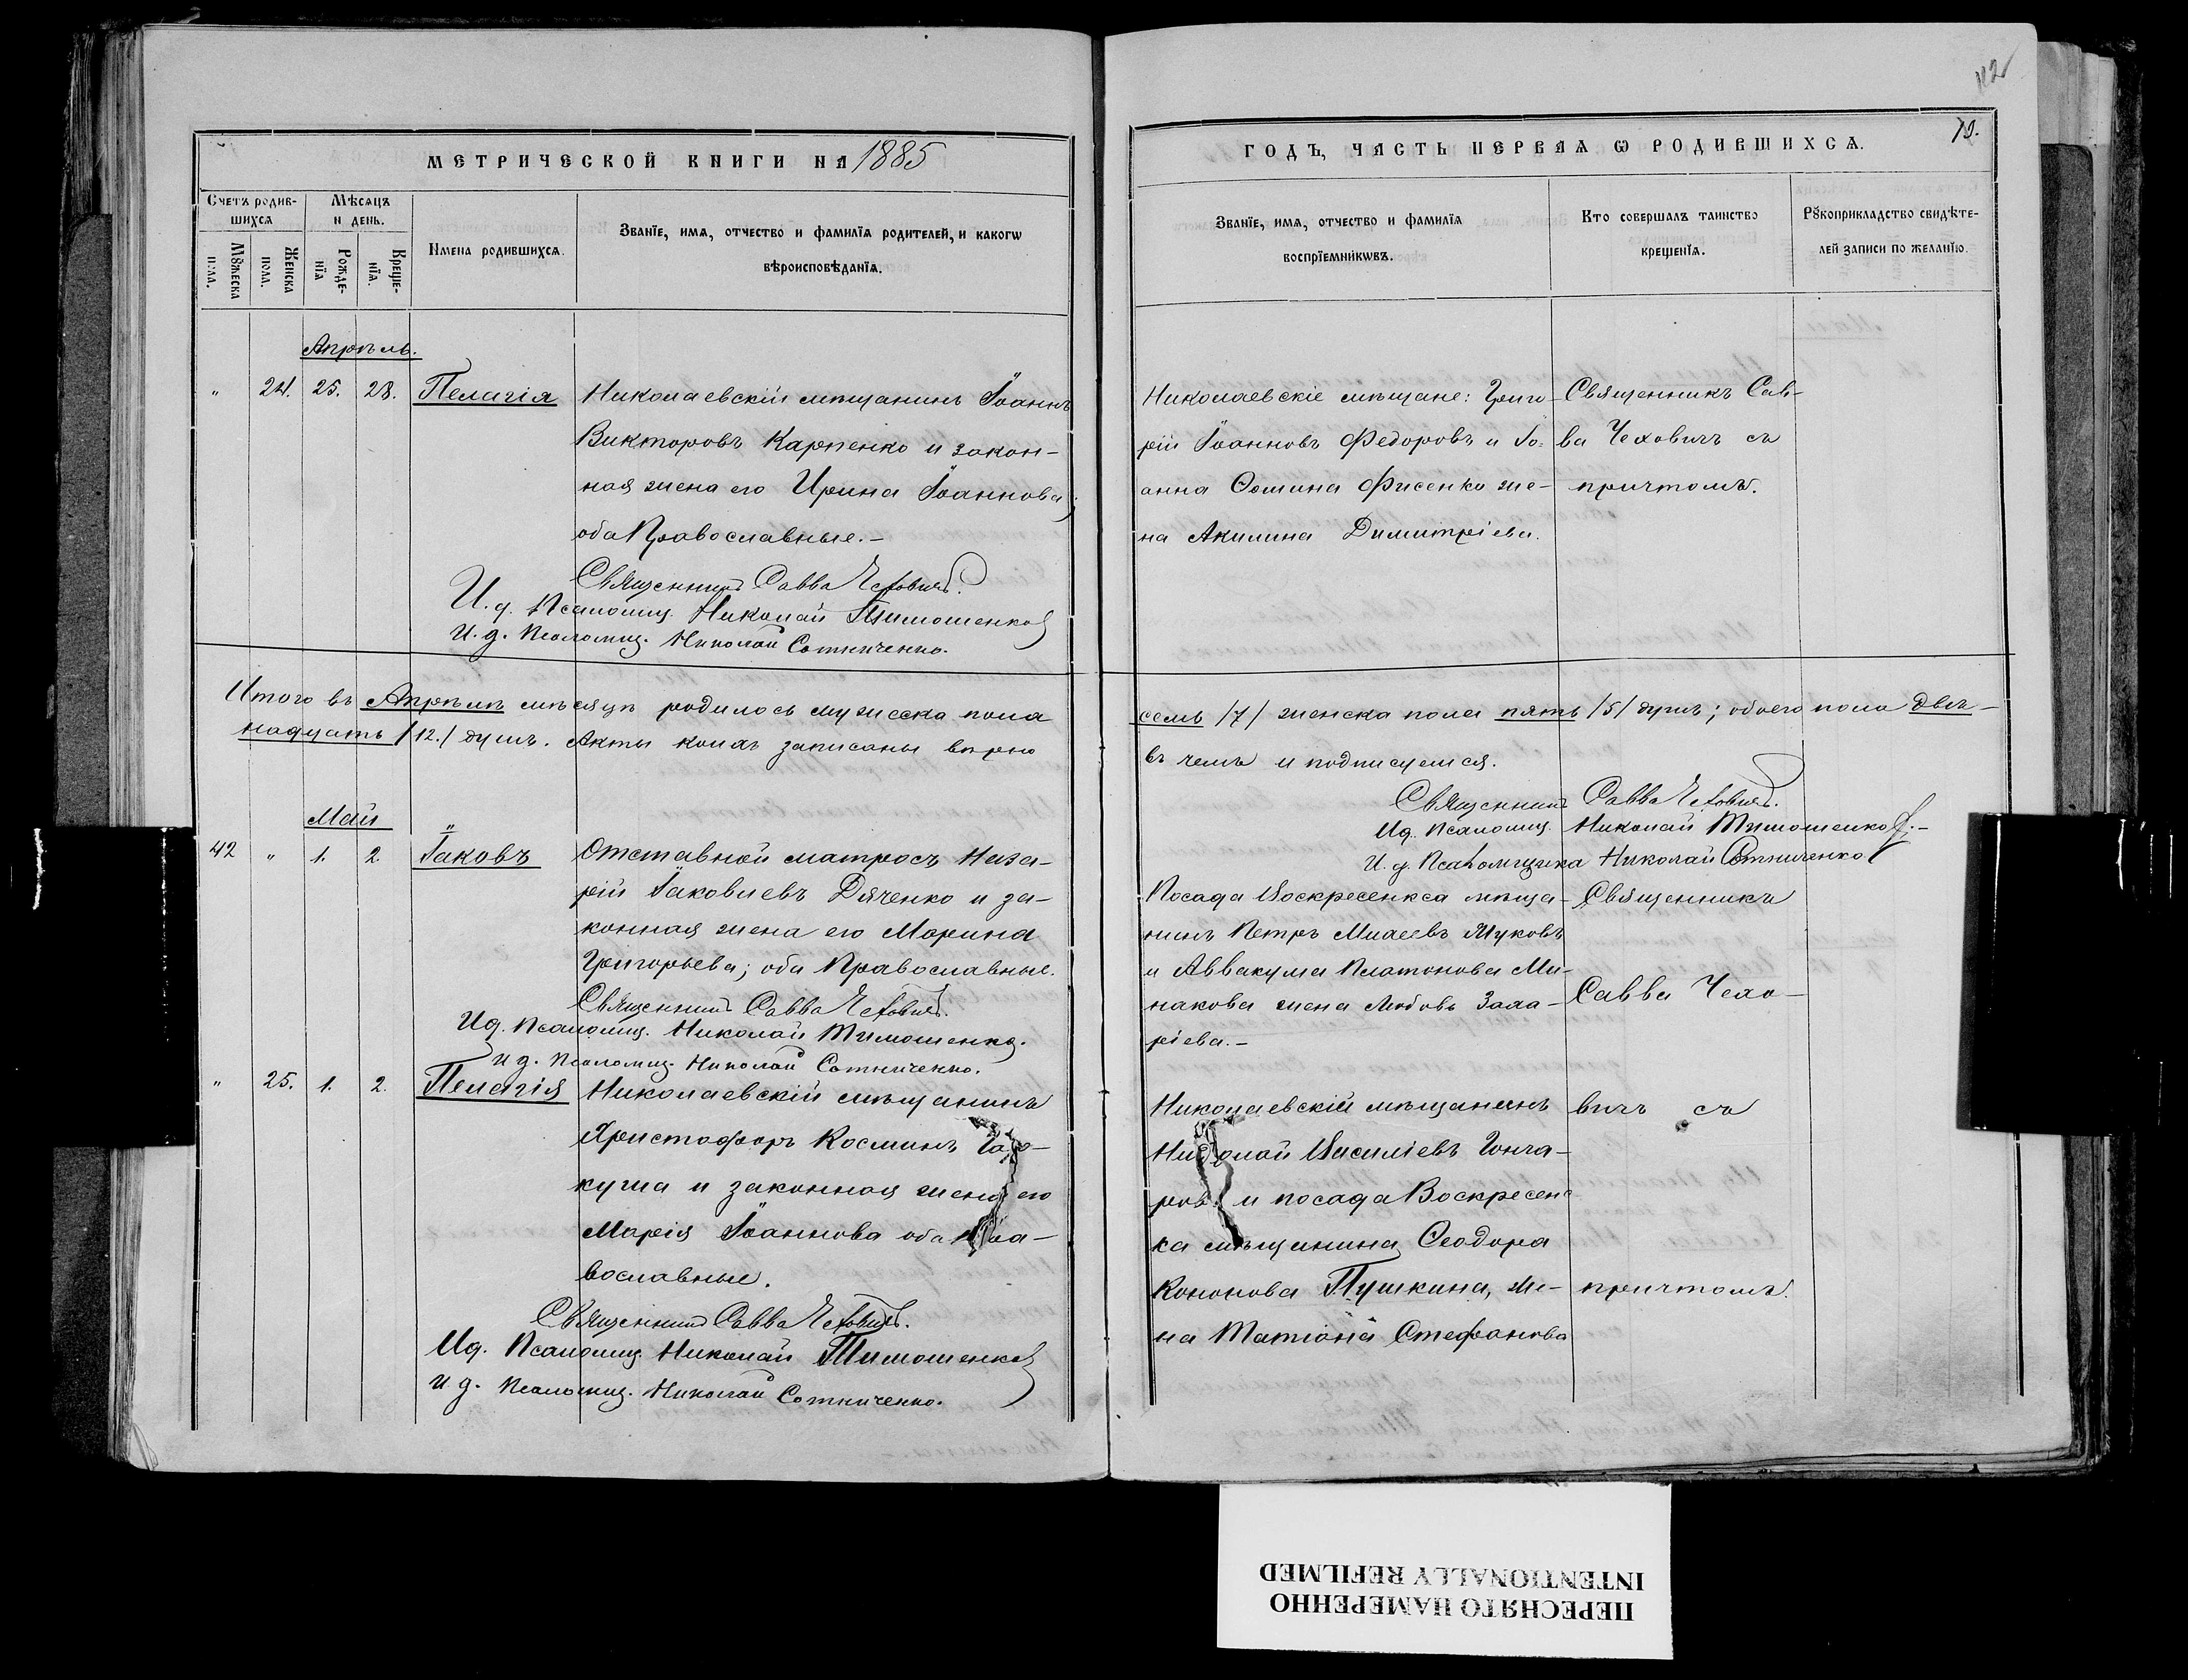 112
МЕТРИЧЕСКОЙ КНИГИ НА 1885
ГОДЪ, ЧАСТЬ ПЕРВАѦ Ѡ РОДИВШИХСѦ.
Счетъ родив-
шихсѧ
Мѣсѧцъ
и день.
Мꙋжеска
пола.
Женска
пола.
Рожде-
нїѧ
Креще-
нїѧ.
Имена родившихсѧ.
Званїе, имѧ, отчество и фамилїѧ родителей, и какогѡ
вѣроисповѣданїѧ.
Званїе, имѧ, отчество и фамилїѧ
воспрїемникѡвъ.
Кто совершалъ таинство
крещенїѧ.
Рꙋкоприкладство свидѣте-
лей записи по желанїю.
Апрѣль.
" 24. 25. 28. Пелагія
Николаевскій мѣщанинъ Іоаннъ
Викторовъ Карпенко и закон-
ная жена его Ирина Іоаннова;
оба Православные.-
Священникъ Савва Чеховичъ.
И. д. Псаломщ. Николай Тимошенко
И. д. Псаломщ. Николай Сотниченко.
Николаевскіе мѣщане: Григо-
рій Іоанновъ Федоровъ и Іо-
анна Фисенко же-
на Акилина Димитріева.
Священникъ Сав-
ва Чеховичъ съ
причтомъ.
Итого въ Апрѣлѣ мѣсяцѣ родилось мужеска пола
семь /7/ женска пола пять /5/ душъ; обоего пола двѣ-
надцать /12./ душъ. Акты коихъ записаны вѣрно
въ чемъ и подписуемся.
Священникъ Савва Чеховичъ.
Ид. Псаломщ. Николай Тимошенко.-
И. д. Псаломщика Николай Сотниченко
Май
42 " 1. 2. Іаковъ
Отставной матросъ Наза-
рій Іаковлевъ Дяченко и за-
конная жена его Марина
Григорьева; оба Православные.
Священникъ Савва Чеховичъ.
Ид. Псаломщ. Николай Тимошенко.
И. д. Псаломщ. Николай Сотниченко.
Посада Воскресенска мѣща-
нинъ Петръ Жуковъ
и Аввакума Платонова Ми-
накова жена Любовь Заха-
ріева.-
Священникъ
Савва Чехо-
" 25. 1. 2. Пелагія
Николаевскій мѣщанинъ
Христофоръ Косминъ
куша и законная жена его
Марія Іоаннова оба Пра-
вославные.
Священникъ Савва Чеховичъ.
Ид. Псаломщ. Николай Тимошенко
И. д. Псаломщ. Николай Сотниченко.
Николаевскій мѣщанинъ
Николай Василіевъ Гонча-
ровъ и посада Воскресенс
ка мѣщанина Ѳеодора
Кононова Пушкина, же-
на Татіана Стефанова
вичъ съ
причтомъ.
ПЕРЕСНЯТО НАМЕРЕННО
INTENTIONALLY REFILMED